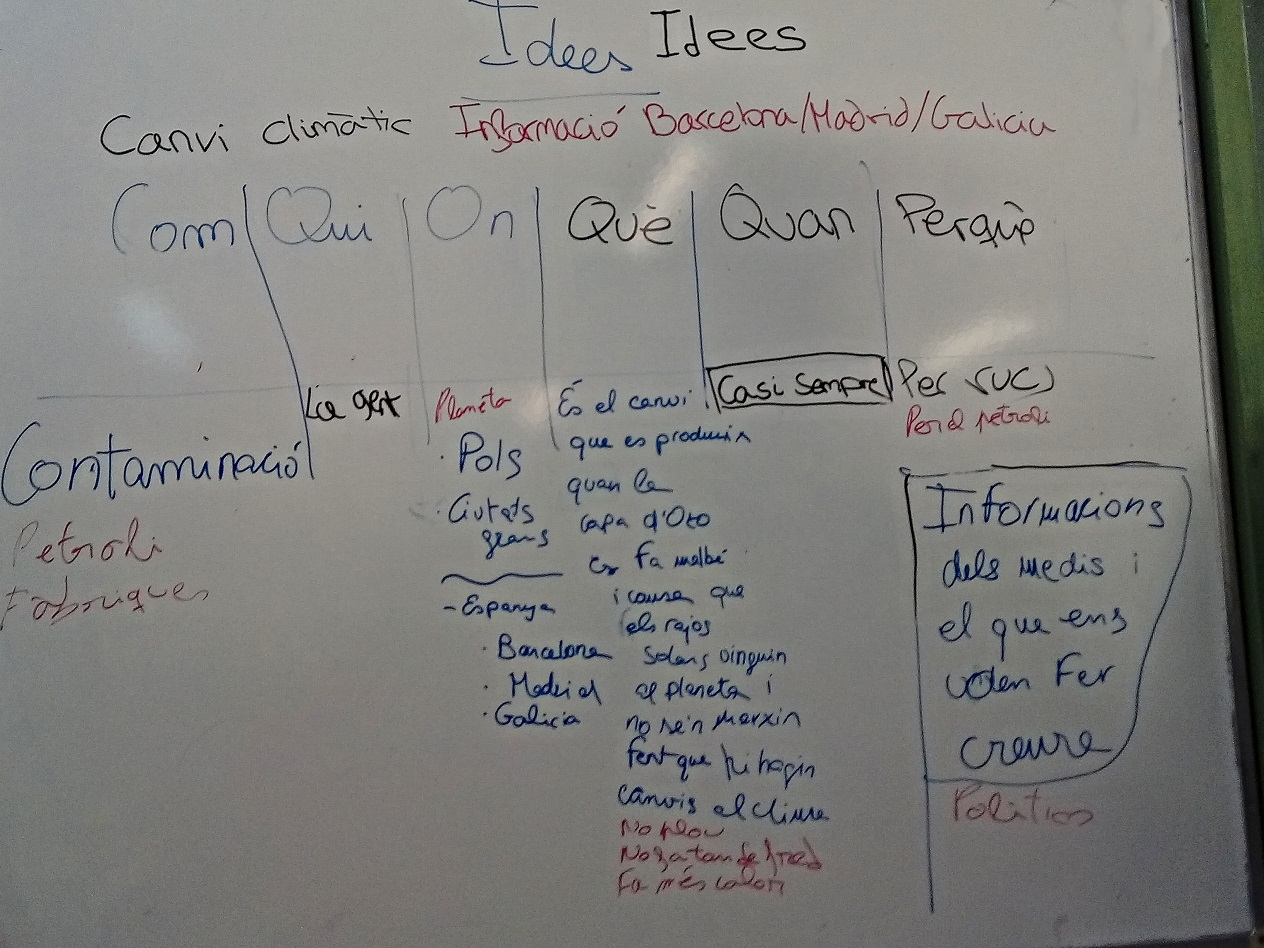 Idees Idees
Canvi climàtic Informació Barcelona/Madrid/Galicia
Com Qui On Què Quan Perquè
Contaminació
Petroli
Fabriques
La gent
Planeta
· Pols
· Ciutats
grans
- Espanya
· Barcelona
· Madrid
· Galicia
És el canvi
que es produix
quan la
capa d'Ozo
es fa malbé
i causa que
els rajos
solars vinguin
al planeta i
no se'n marxin
fent que hi hagin
canvis al clima
No plou
No fa tan de fred
Fa més calor
Casi sempre
Per
Per el petroli
Informacions
dels medis i
el que ens
volen fer
creure